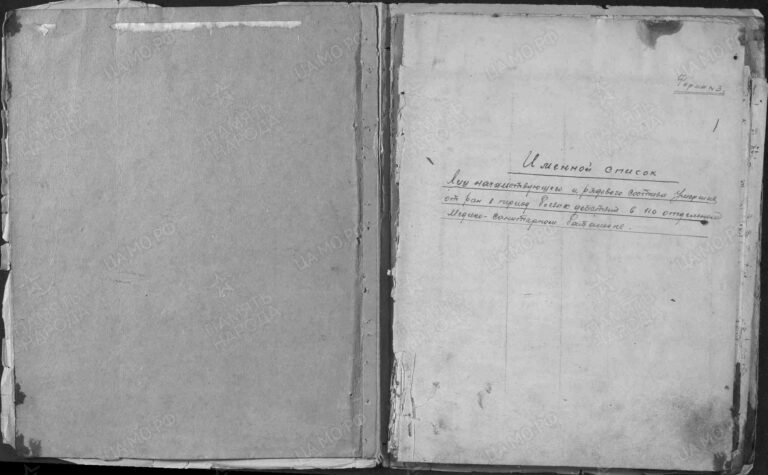 Форма №3.
1
Именной список
Лиц начальствующего и рядового состава умерших
от ран в период боевых действий в 110 отдельном
Медико-санитарном батальоне.
ЦАМО.РФ
ПАМЯТЬ НАРОДА